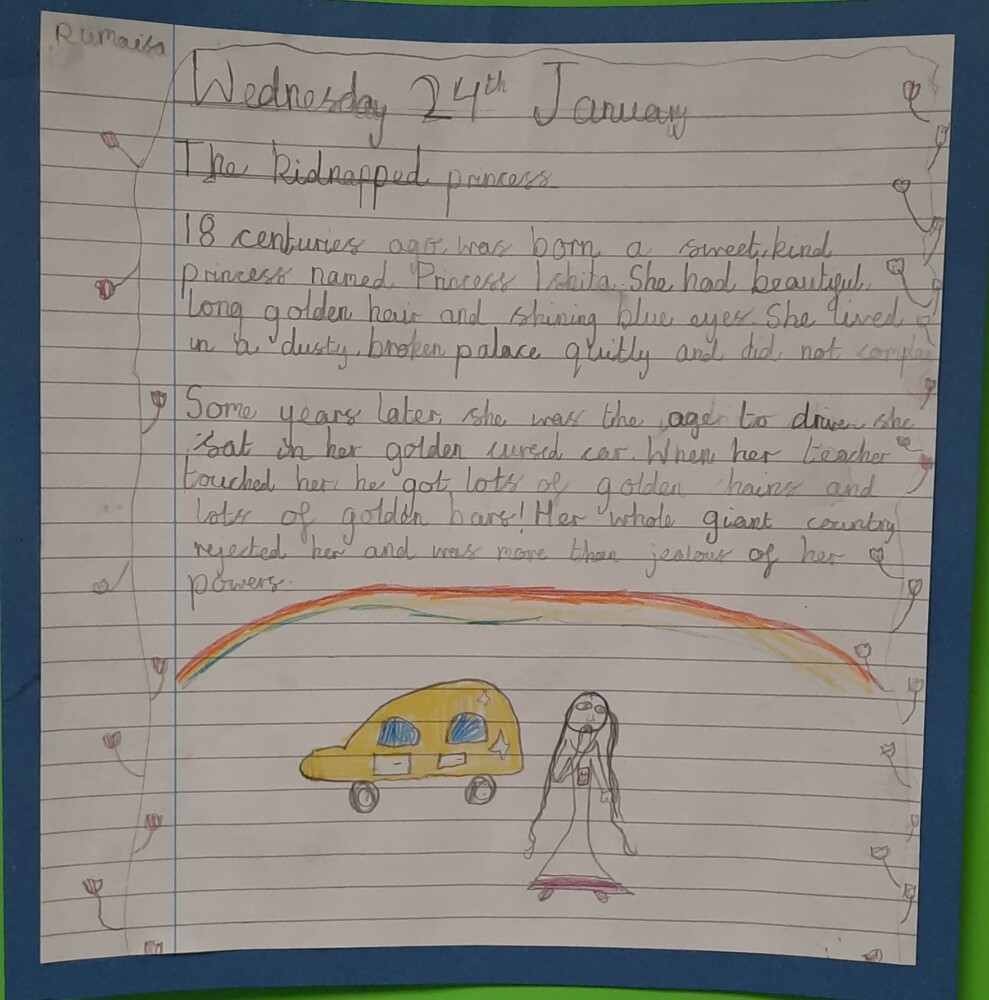 Rumaisa
Wednesday 24th January
The kidnapped princess
18 centuries ago, was born a sweet, kind
princess named Princess Ishita. She had beautiful,
long golden hair and shining blue eyes. She lived
in a dusty, broken palace quitly and did not
Some years later, she was the age to drive, she
sat in her golden cursed car. When her teacher
touched her, he got lots of golden chains and
lots of golden bars! Her whole giant country
rejected her and was more than jealous of her
powers.